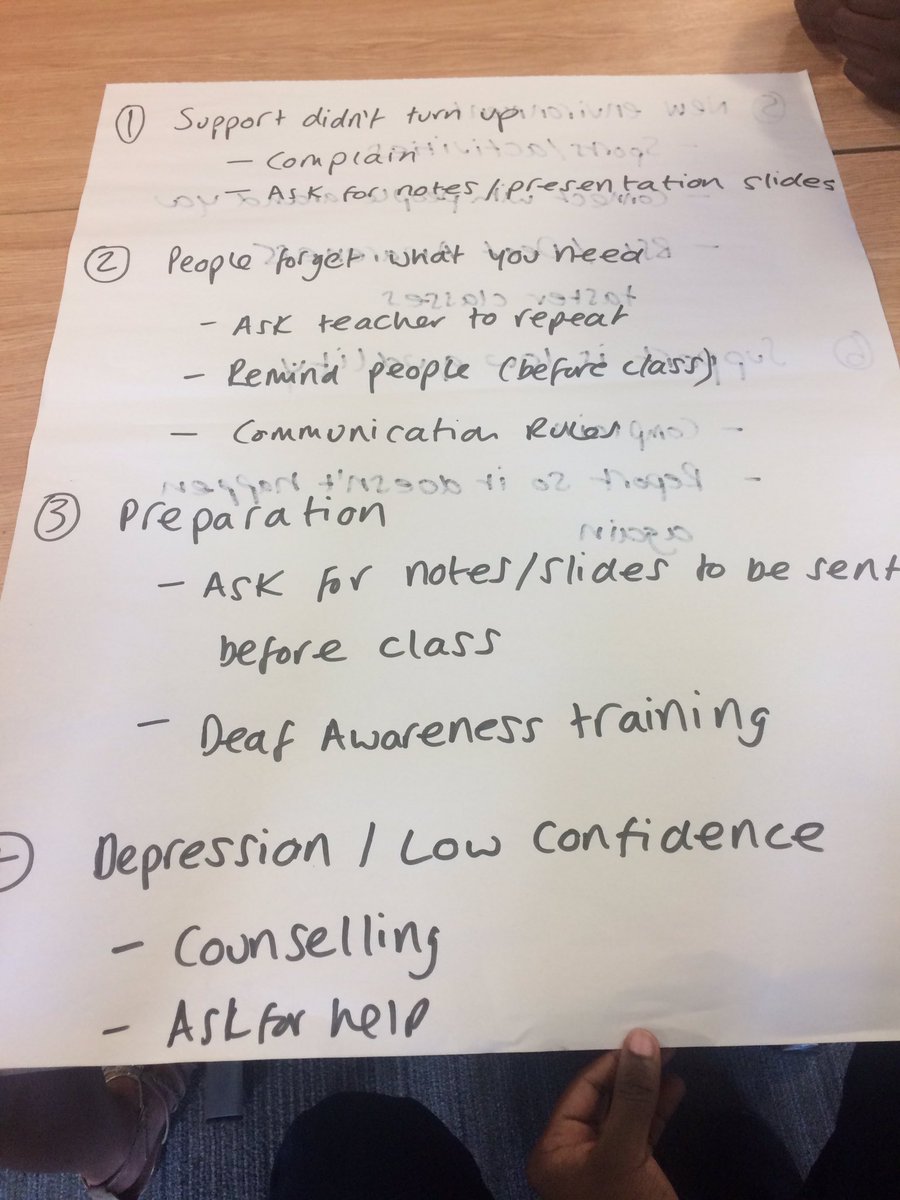 ① Support didn't turn up
- Complain
- Ask for notes/presentation slides
② People forget what you need
- Ask teacher to repeat
- Remind people (before class)
- Communication Rules
③ Preparation
- Ask for notes/slides to be sent
before class
- Deaf Awareness training
Depression / Low confidence
- Counselling
- Ask for help